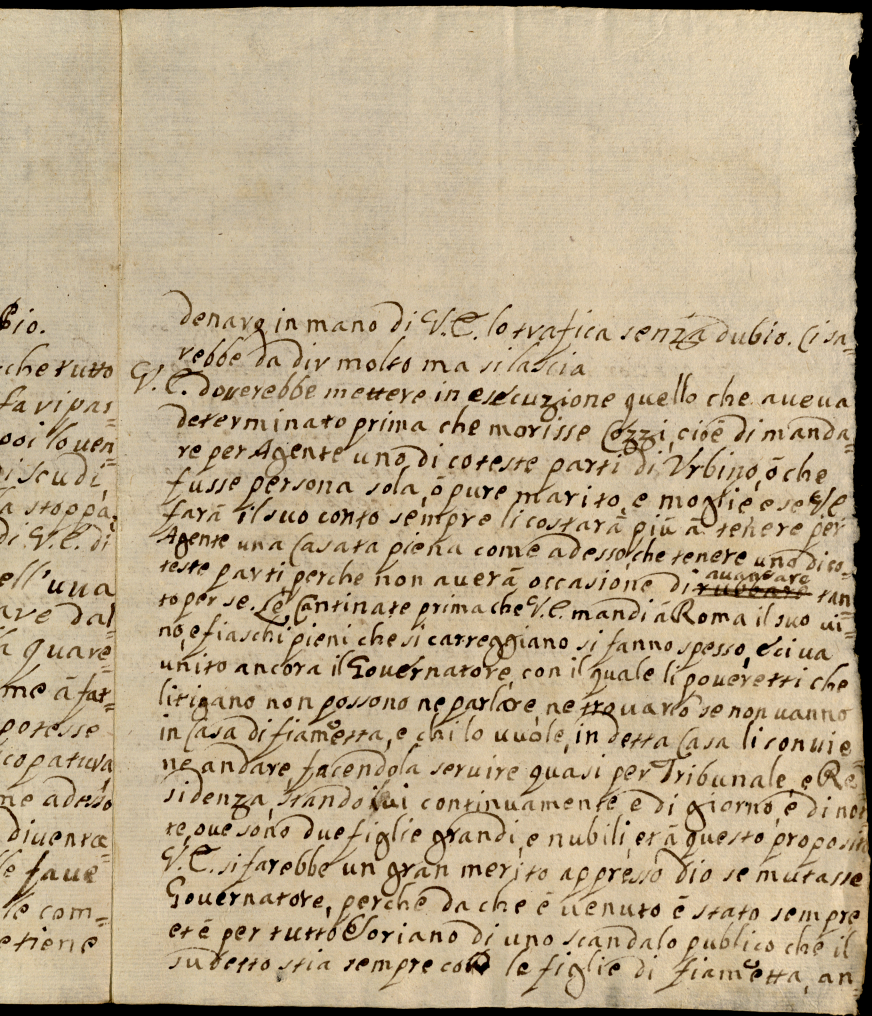 Bio.
che tutto
fa ripas=
poi lo uen=
di scudi
a stoppa,
di V.E. di
ell'una
are dal=
à quare=
me à fat=
potesse
copatura
me adesso
diuenta=
le faue
le com=
etiene
denaro in mano di V.E. lo trafica senza dubio. Ci sa=
rebbe da dir molto ma si lascia
V.E. douerebbe mettere in esecuzione quello che aueua
determinato prima che morisse Cozzi, cioè di manda=
re per Agente uno di coteste parti di Vrbino, ò che
fusse persona sola, ò pure marito, e moglie, e se V.E.
farà il suo conto sempre li costarà più à tenere per
Agente una Casata piena come adesso, che tenere uno di co=
teste parti perche non auerà occasione di rubbare auanzare tan=
to per se. Le Cantinate prima che V.E. mandi à Roma il suo ui=
no, e fiaschi pieni che si carreggiano si fanno spesso, e ci ua
unito ancora il Gouernatore, con il quale li poueretti che
litigano non possono ne parlare, ne trouarlo se non uanno
in Casa di fiametta, e chi lo uuole, in detta Casa li conuie=
ne andare, facendola seruire quasi per Tribunale, e Re=
sidenza, stando iui continuamente e di giorno, e di not=
te, oue sono due figlie grandi, e nubili, et à questo proposito
V.E. si farebbe un gran merito appresso dio se mutasse
Gouernatore, perche da che è uenuto è stato sempre
et è per tutto Soriano di uno scandalo publico che il
sudetto stia sempre con le figlie di fiametta, an=